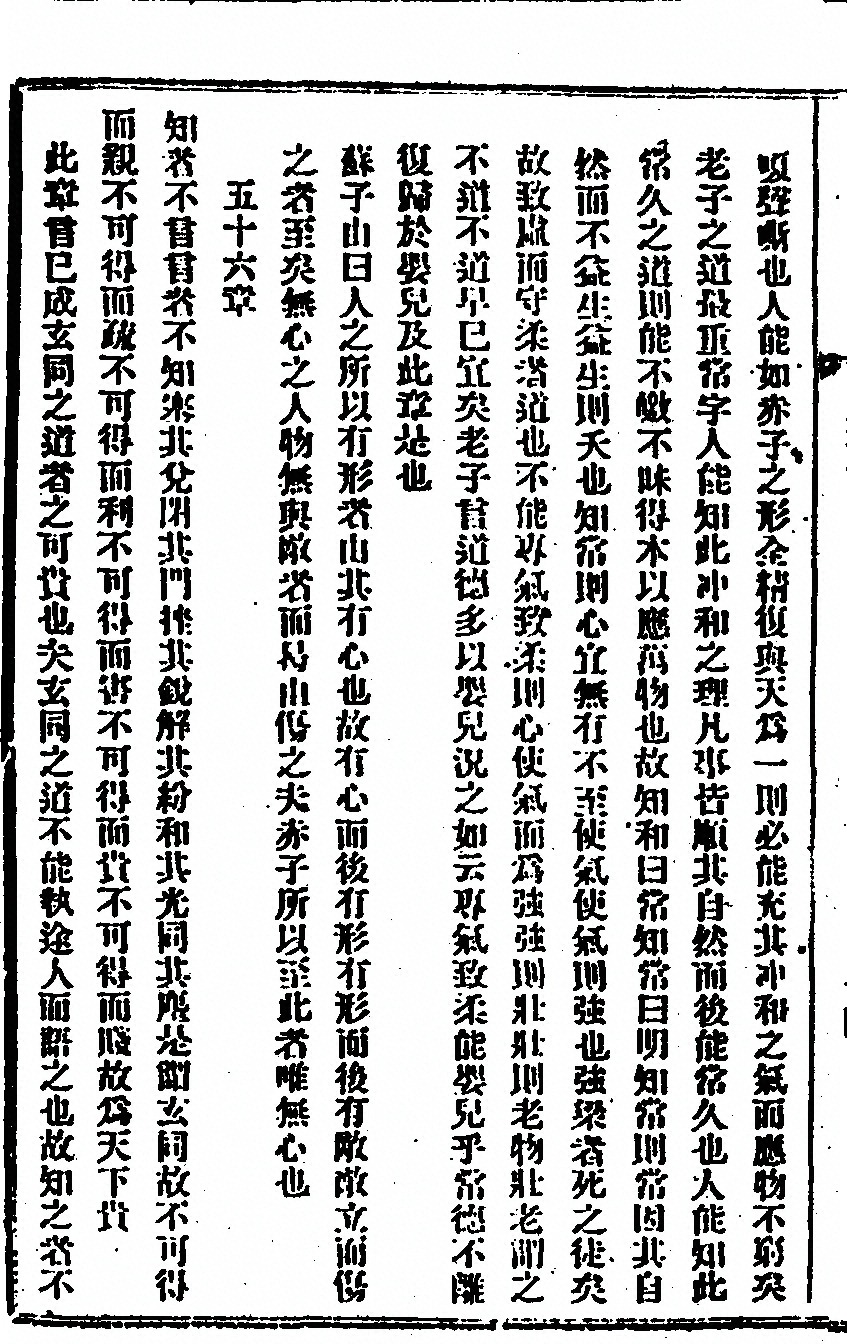 嗄聲嘶也人能如赤子之形全精復與天爲一則必能充其冲和之氣而應物不窮矣
老子之道最重常字人能知此冲和之理凡事皆順其自然而後能常久也人能知此
常久之道則能不皦不昧得本以應萬物也故知和曰常知常曰明知常則常因其自
然而不益生益生則夭也知常則心宜無有不至使氣使氣則強也強梁者死之徒矣
故致虛而守柔者道也不能專氣致柔則心使氣而爲強強則壯壯則老物壯老謂之
不道不道早已宜矣老子言道德多以嬰兒況之如云專氣致柔能嬰兒乎常德不離
復歸於嬰兒及此章是也
蘇子由曰人之所以有形者由其有心也故有心而後有形有形而後有敵敵立而傷
之者至矣無心之人物無與敵者而曷由傷之夫赤子所以至此者唯無心也
五十六章
知者不言言者不知塞其兌閉其門挫其銳解其紛和其光同其塵是謂玄同故不可得
而親不可得而疏不可得而利不可得而害不可得而貴不可得而賤故爲天下貴
此章言已成玄同之道者之可貴也夫玄同之道不能執途人而語之也故知之者不